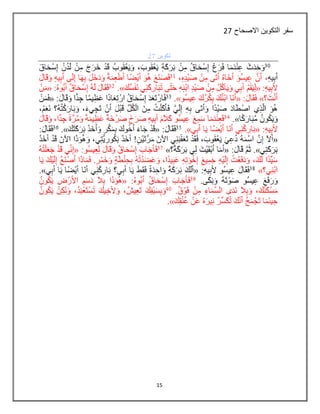 سفر التكوين الاصحاح 27
تكوين 27
30وَحَدَثَ عِنْدَمَا فَرَغَ إِسْحَاقُ مِنْ بَرَكَةِ يَعْقُوبَ، وَيَعْقُوبُ قَدْ خَرَجَ مِنْ لَدُنْ إِسْحَاقَ
أَبِيهِ، أَنَّ عِيسُوَ أَخَاهُ أَتَى مِنْ صَيْدِهِ، 31فَصَنَعَ هُوَ أَيْضًا أَطْعِمَةً وَدَخَلَ بِهَا إِلَى أَبِيهِ وَقَالَ
لأَبِيهِ: «لِيَقُمْ أَبِي وَيَأْكُلْ مِنْ صَيْدِ ابْنِهِ حَتَّى تُبَارِكَنِي نَفْسُكَ». 32فَقَالَ لَهُ إِسْحَاقُ أَبُوهُ: «مَنْ
أَنْتَ؟» فَقَالَ: «أَنَا ابْنُكَ بِكْرُكَ عِيسُو». 33فَارْتَعَدَ إِسْحَاقُ ارْتِعَادًا عَظِيمًا جِدًّا وَقَالَ: «فَمَنْ
هُوَ الَّذِي اصْطَادَ صَيْدًا وَأَتَى بِهِ إِلَيَّ فَأَكَلْتُ مِنَ الْكُلِّ قَبْلَ أَنْ تَجِيءَ، وَبَارَكْتُهُ؟ نَعَمْ،
وَيَكُونُ مُبَارَكًا». 34فَعِنْدَمَا سَمِعَ عِيسُو كَلاَمَ أَبِيهِ صَرَخَ صَرْخَةً عَظِيمَةً وَمُرَّةً جِدًّا، وَقَالَ
لأَبِيهِ: «بَارِكْنِي أَنَا أَيْضًا يَا أَبِي». 35فَقَالَ: «قَدْ جَاءَ أَخُوكَ بِمَكْرٍ وَأَخَذَ بَرَكَتَكَ». 36فَقَالَ:
«أَلاَ إِنَّ اسْمَهُ دُعِيَ يَعْقُوبَ، فَقَدْ تَعَقَّبَنِي الآنَ مَرَّتَيْنِ! أَخَذَ بَكُورِيَّتِي، وَهُوَذَا الآنَ قَدْ أَخَذَ
بَرَكَتِي». ثُمَّ قَالَ: «أَمَا أَبْقَيْتَ لِي بَرَكَةً؟» 37فَأَجَابَ إِسْحَاقُ وَقَالَ لِعِيسُو: «إِنِّي قَدْ جَعَلْتُهُ
سَيِّدًا لَكَ، وَدَفَعْتُ إِلَيْهِ جَمِيعَ إِخْوَتِهِ عَبِيدًا، وَعَضَدْتُهُ بِحِنْطَةٍ وَخَمْرٍ. فَمَاذَا أَصْنَعُ إِلَيْكَ يَا
ابْنِي؟» 38فَقَالَ عِيسُو لأَبِيهِ: «أَلَكَ بَرَكَةٌ وَاحِدَةٌ فَقَطْ يَا أَبِي؟ بَارِكْنِي أَنَا أَيْضًا يَا أَبِي».
وَرَفَعَ عِيسُو صَوْتَهُ وَبَكَى. 39فَأَجَابَ إِسْحَاقُ أَبُوهُ: «هُوَذَا بِلاَ دَسَمِ الأَرْضِ يَكُونُ
مَسْكَنُكَ، وَبِلاَ نَدَى السَّمَاءِ مِنْ فَوْقُ. 40وَبِسَيْفِكَ تَعِيشُ، وَلأَخِيكَ تُسْتَعْبَدُ، وَلكِنْ يَكُونُ
حِينَمَا تَجْمَحُ أَنَّكَ تُكَسِّرُ نِيرَهُ عَنْ عُنُقِكَ».
15